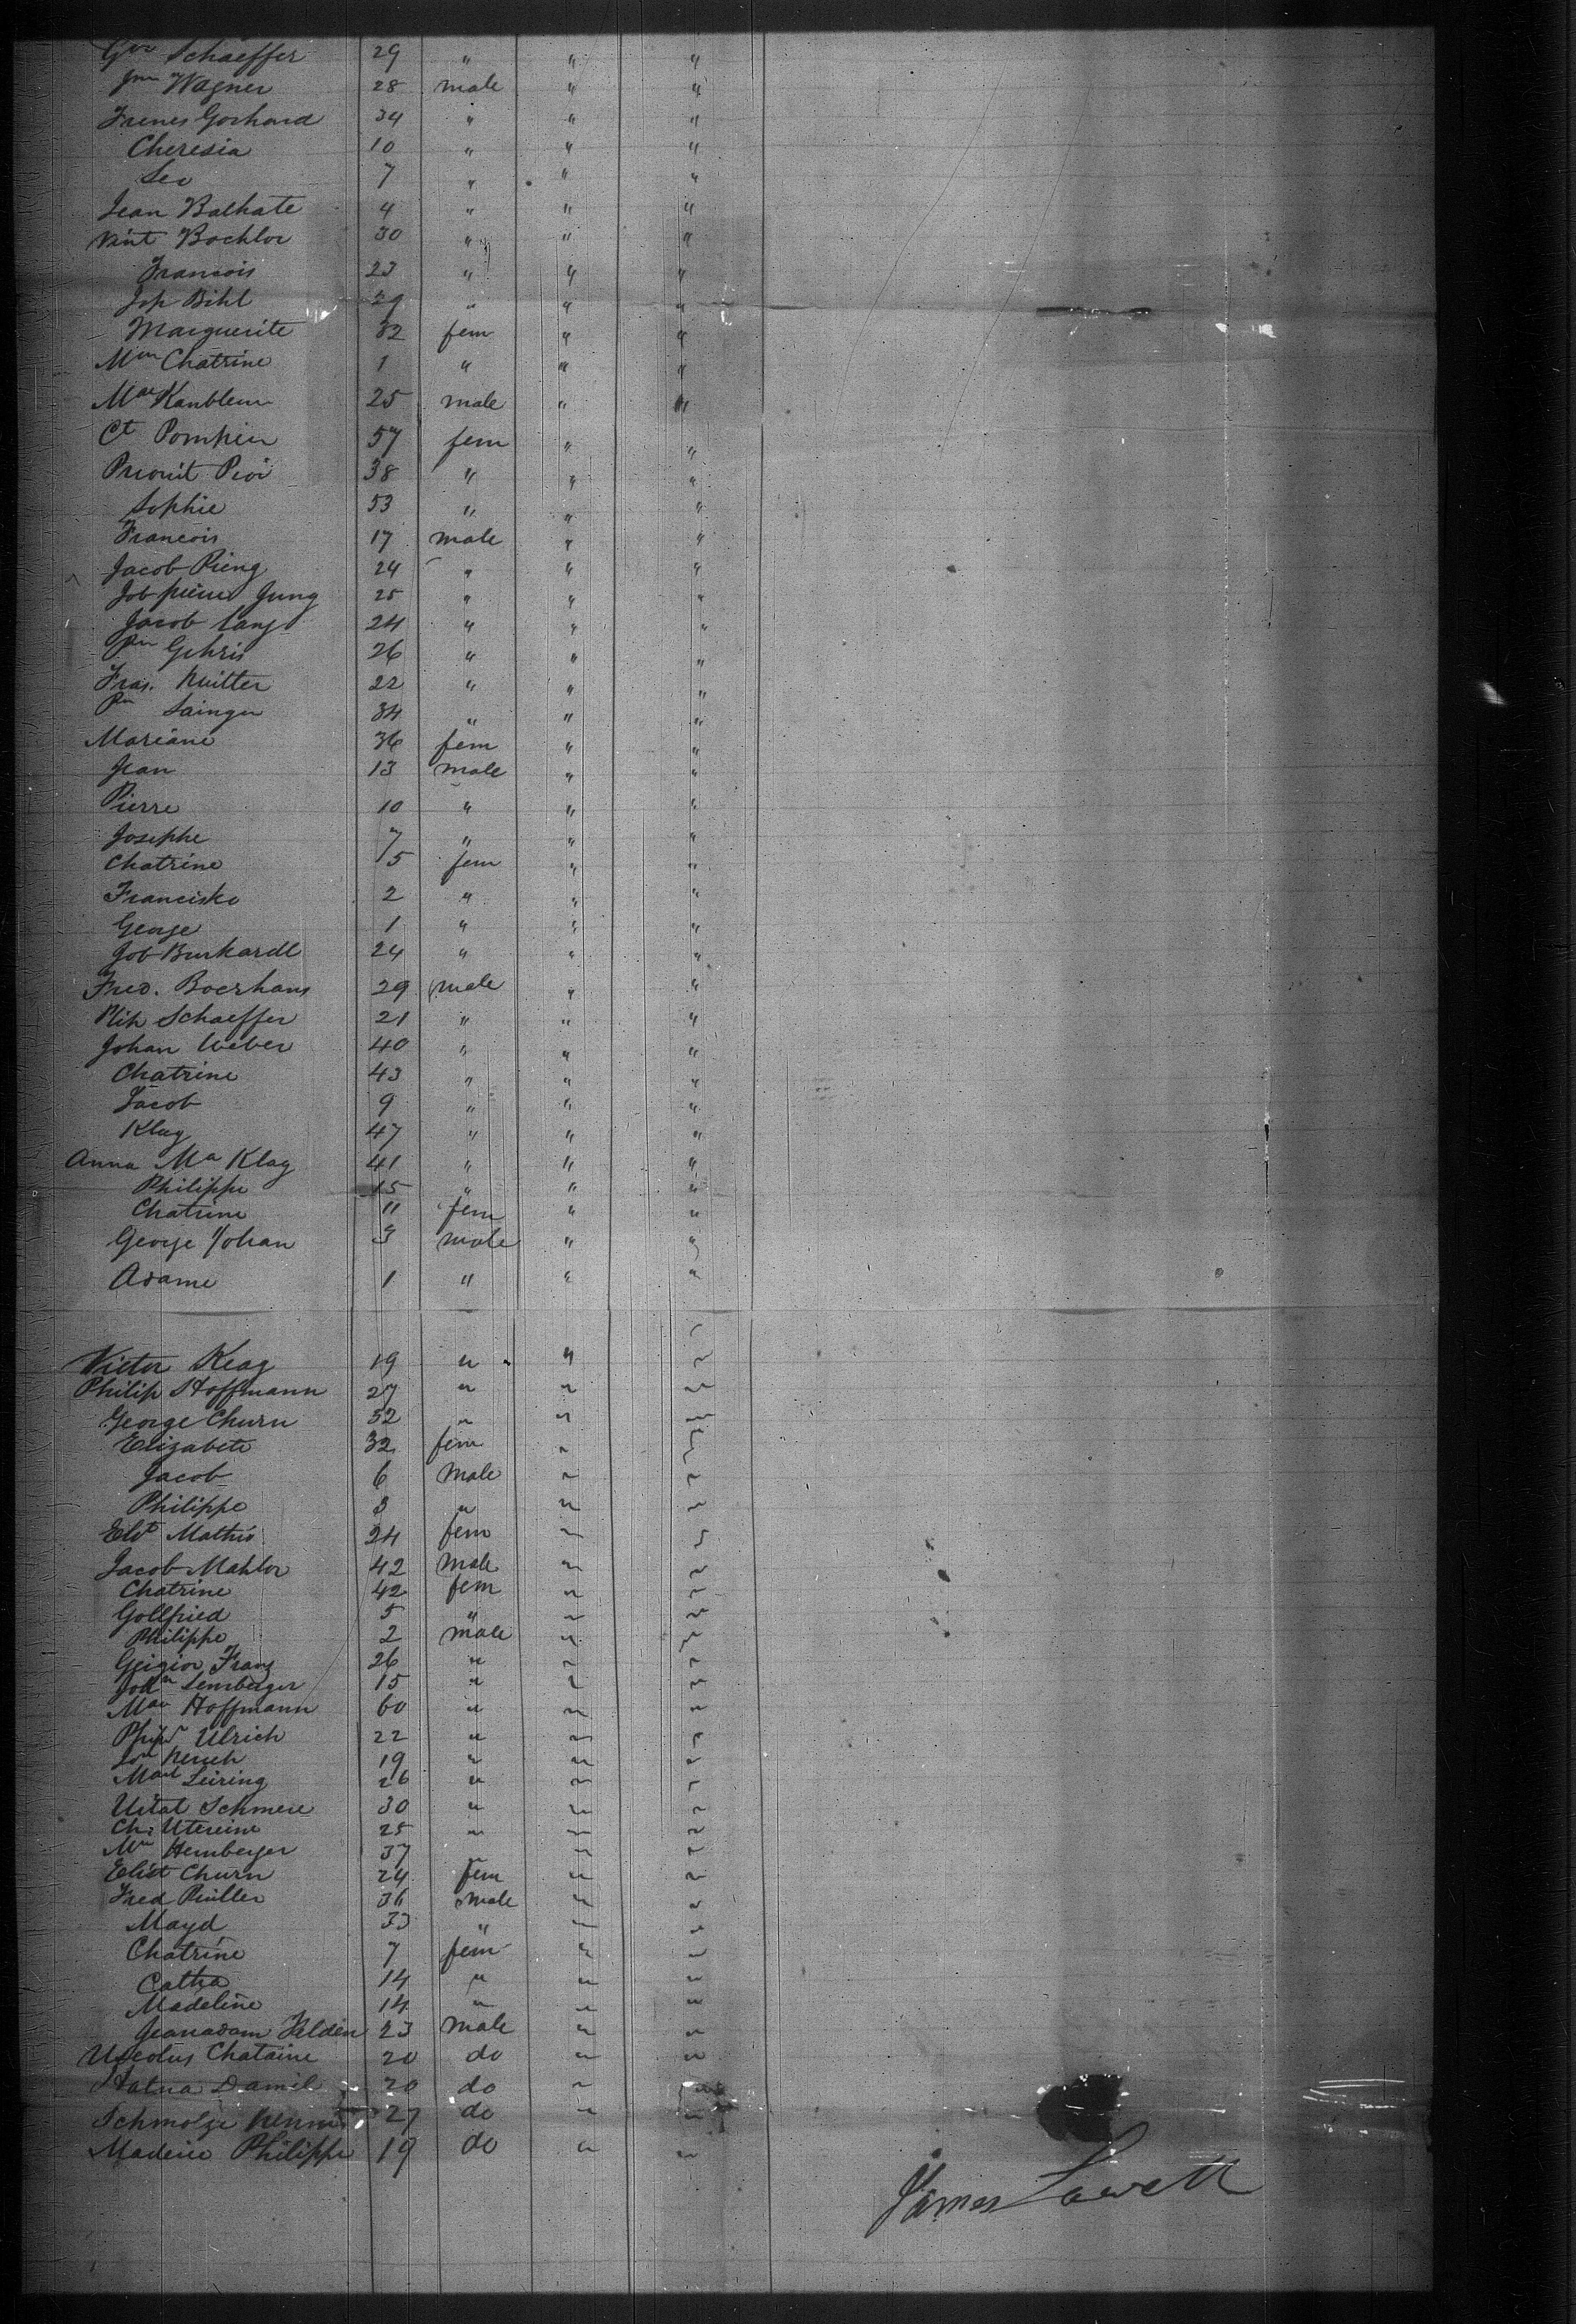 Geo Schaeffer 29 " " "
Jnn Wagner 28 male " "
Frenes Gorhard 34 " " "
Cheresia 10 " " "
Leo 7 " " "
Jean Balhate 4 " " "
Vint Bochlor 30 " " "
Francois 23 " " "
Jop Bihl 29 " " "
Marguerite 32 fem " "
Mm Chatrine 1 " " "
Mae Kanblem 25 male " "
Ct Pompier 57 fem " "
Prionit Proi 38 " " "
Sophie 53 " " "
Francois 17 male " "
Jacob Pieng 24 " " "
Job pierre Jung 25 " " "
Jacob Lang 24 " " "
Pre Gehris 26 " " "
Fras. Nuitter 22 " " "
Pre Lainger 34 " " "
Mariane 36 fem " "
Jean 13 male " "
Pierre 10 " " "
Josephe 7 " " "
Chatrine 5 fem " "
Franciske 2 " " "
George 1 " " "
Job Burkardt 24 " " "
Fred. Boerhans 29 male " "
Nih Schaeffer 21 " " "
Johan Weber 40 " " "
Chatrine 43 " " "
Jacob 9 " " "
Klag 47 " " "
Anna Ma Klag 41 " " "
Philippe 15 " " "
Chatrine 11 fem " "
George Johan 3 male " "
Adame 1 " " "
Victor Keag 19 " " "
Philip Hoffmann 27 " " "
George Churn 52 " " "
Elizabete 32 fem " "
Jacob 6 male " "
Philippe 3 " " "
Elbt Mathis 24 fem " "
Jacob Mahlor 42 male " "
Chatrine 42 fem " "
Gollfried 5 " " "
Philippe 2 male " "
Geigior Franz 26 " " "
John Lemberger 15 " " "
Mae Hoffmann 60 " " "
Ulrich 22 " " "
19 " " "
Leiring 26 " " "
Uital Schmere 30 " " "
Ch: Utereine 25 " " "
Mn Hemberger 37 " " "
Elist Churn 24 fem " "
Fred Piuller 36 male " "
Mayd 33 " " "
Chatrine 7 fem " "
Catha 14 " " "
Madeline 14 " " "
Jeanadam Helden 23 male " "
Useolus Chataine 20 do " "
Damil 20 do " "
Schmolze 27 do " "
Madeire Philippe 19 do " "
James Lowell